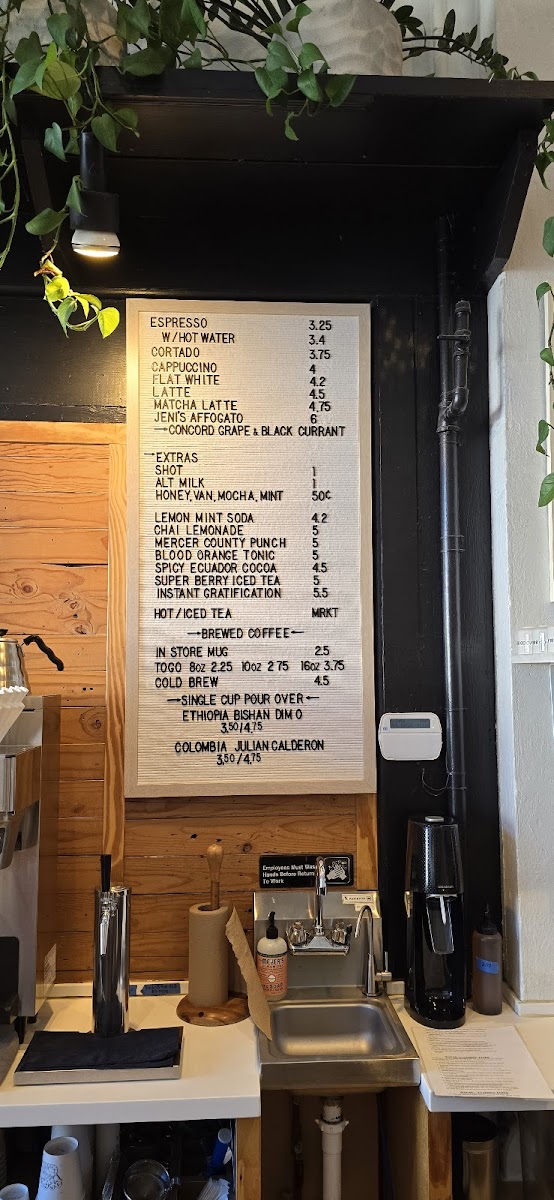 ESPRESSO 3.25
W/HOT WATER 3.4
CORTADO 3.75
CAPPUCCINO 4
FLAT WHITE 4.2
LATTE 4.5
MATCHA LATTE 4.75
JENI'S AFFOGATO 6
→CONCORD GRAPE & BLACK CURRANT
→EXTRAS
SHOT 1
ALT MILK 1
HONEY, VAN, MOCHA, MINT 50¢
LEMON MINT SODA 4.2
CHAI LEMONADE 5
MERCER COUNTY PUNCH 5
BLOOD ORANGE TONIC 5
SPICY ECUADOR COCOA 4.5
SUPER BERRY ICED TEA 5
INSTANT GRATIFICATION 5.5
HOT/ICED TEA MRKT
→BREWED COFFEE←
IN STORE MUG 2.5
TOGO 8oz 2.25 10oz 2 75 16oz 3.75
COLD BREW 4.5
→SINGLE CUP POUR OVER←
ETHIOPIA BISHAN DIMO
3.50/4.75
COLOMBIA JULIAN CALDERON
3.50/4.75
Employees Must Wash
Hands Before Return
To Work
MEYER'S